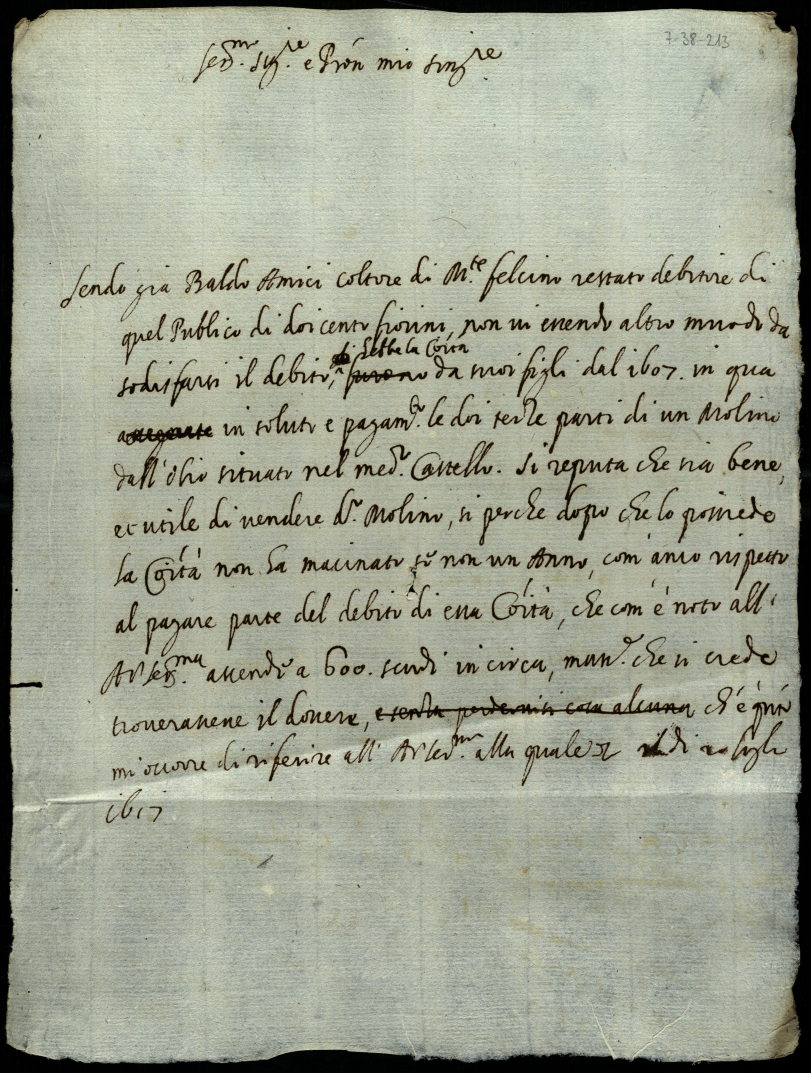 7-38-213
Ser.mo Sig.re e Pròn mio sing.re
Sendo già Baldo Amici coltore di M.te felcino restato debitore di
quel Publico di doi cento fiorini, non vi essendo altro muodo da
si hebbe la Co͠ita
sodisfarsi il debito, furono da suoi figli dal 1607. in qua
assegnate in soluto e pagam.to le doi terze parti di un Molino
dall'olio situato nel med.o Castello. Si reputa che sia bene,
et utile di vendere d.o Molino, si perche dopo che lo possiede
la Co͠ita non ha macinato se non un Anno, com'anco rispetto
al pagare parte del debito di essa Co͠ita, che com'è noto all'
A.V. Ser.ma ascende a 600. scudi in circa, mass.e che si crede
trovarassene il dovere, e senza perdervisi cosa alcuna ch'è q.nto
mi occorre di riferire all' A.V. Ser.ma alla quale il di luglio
1617